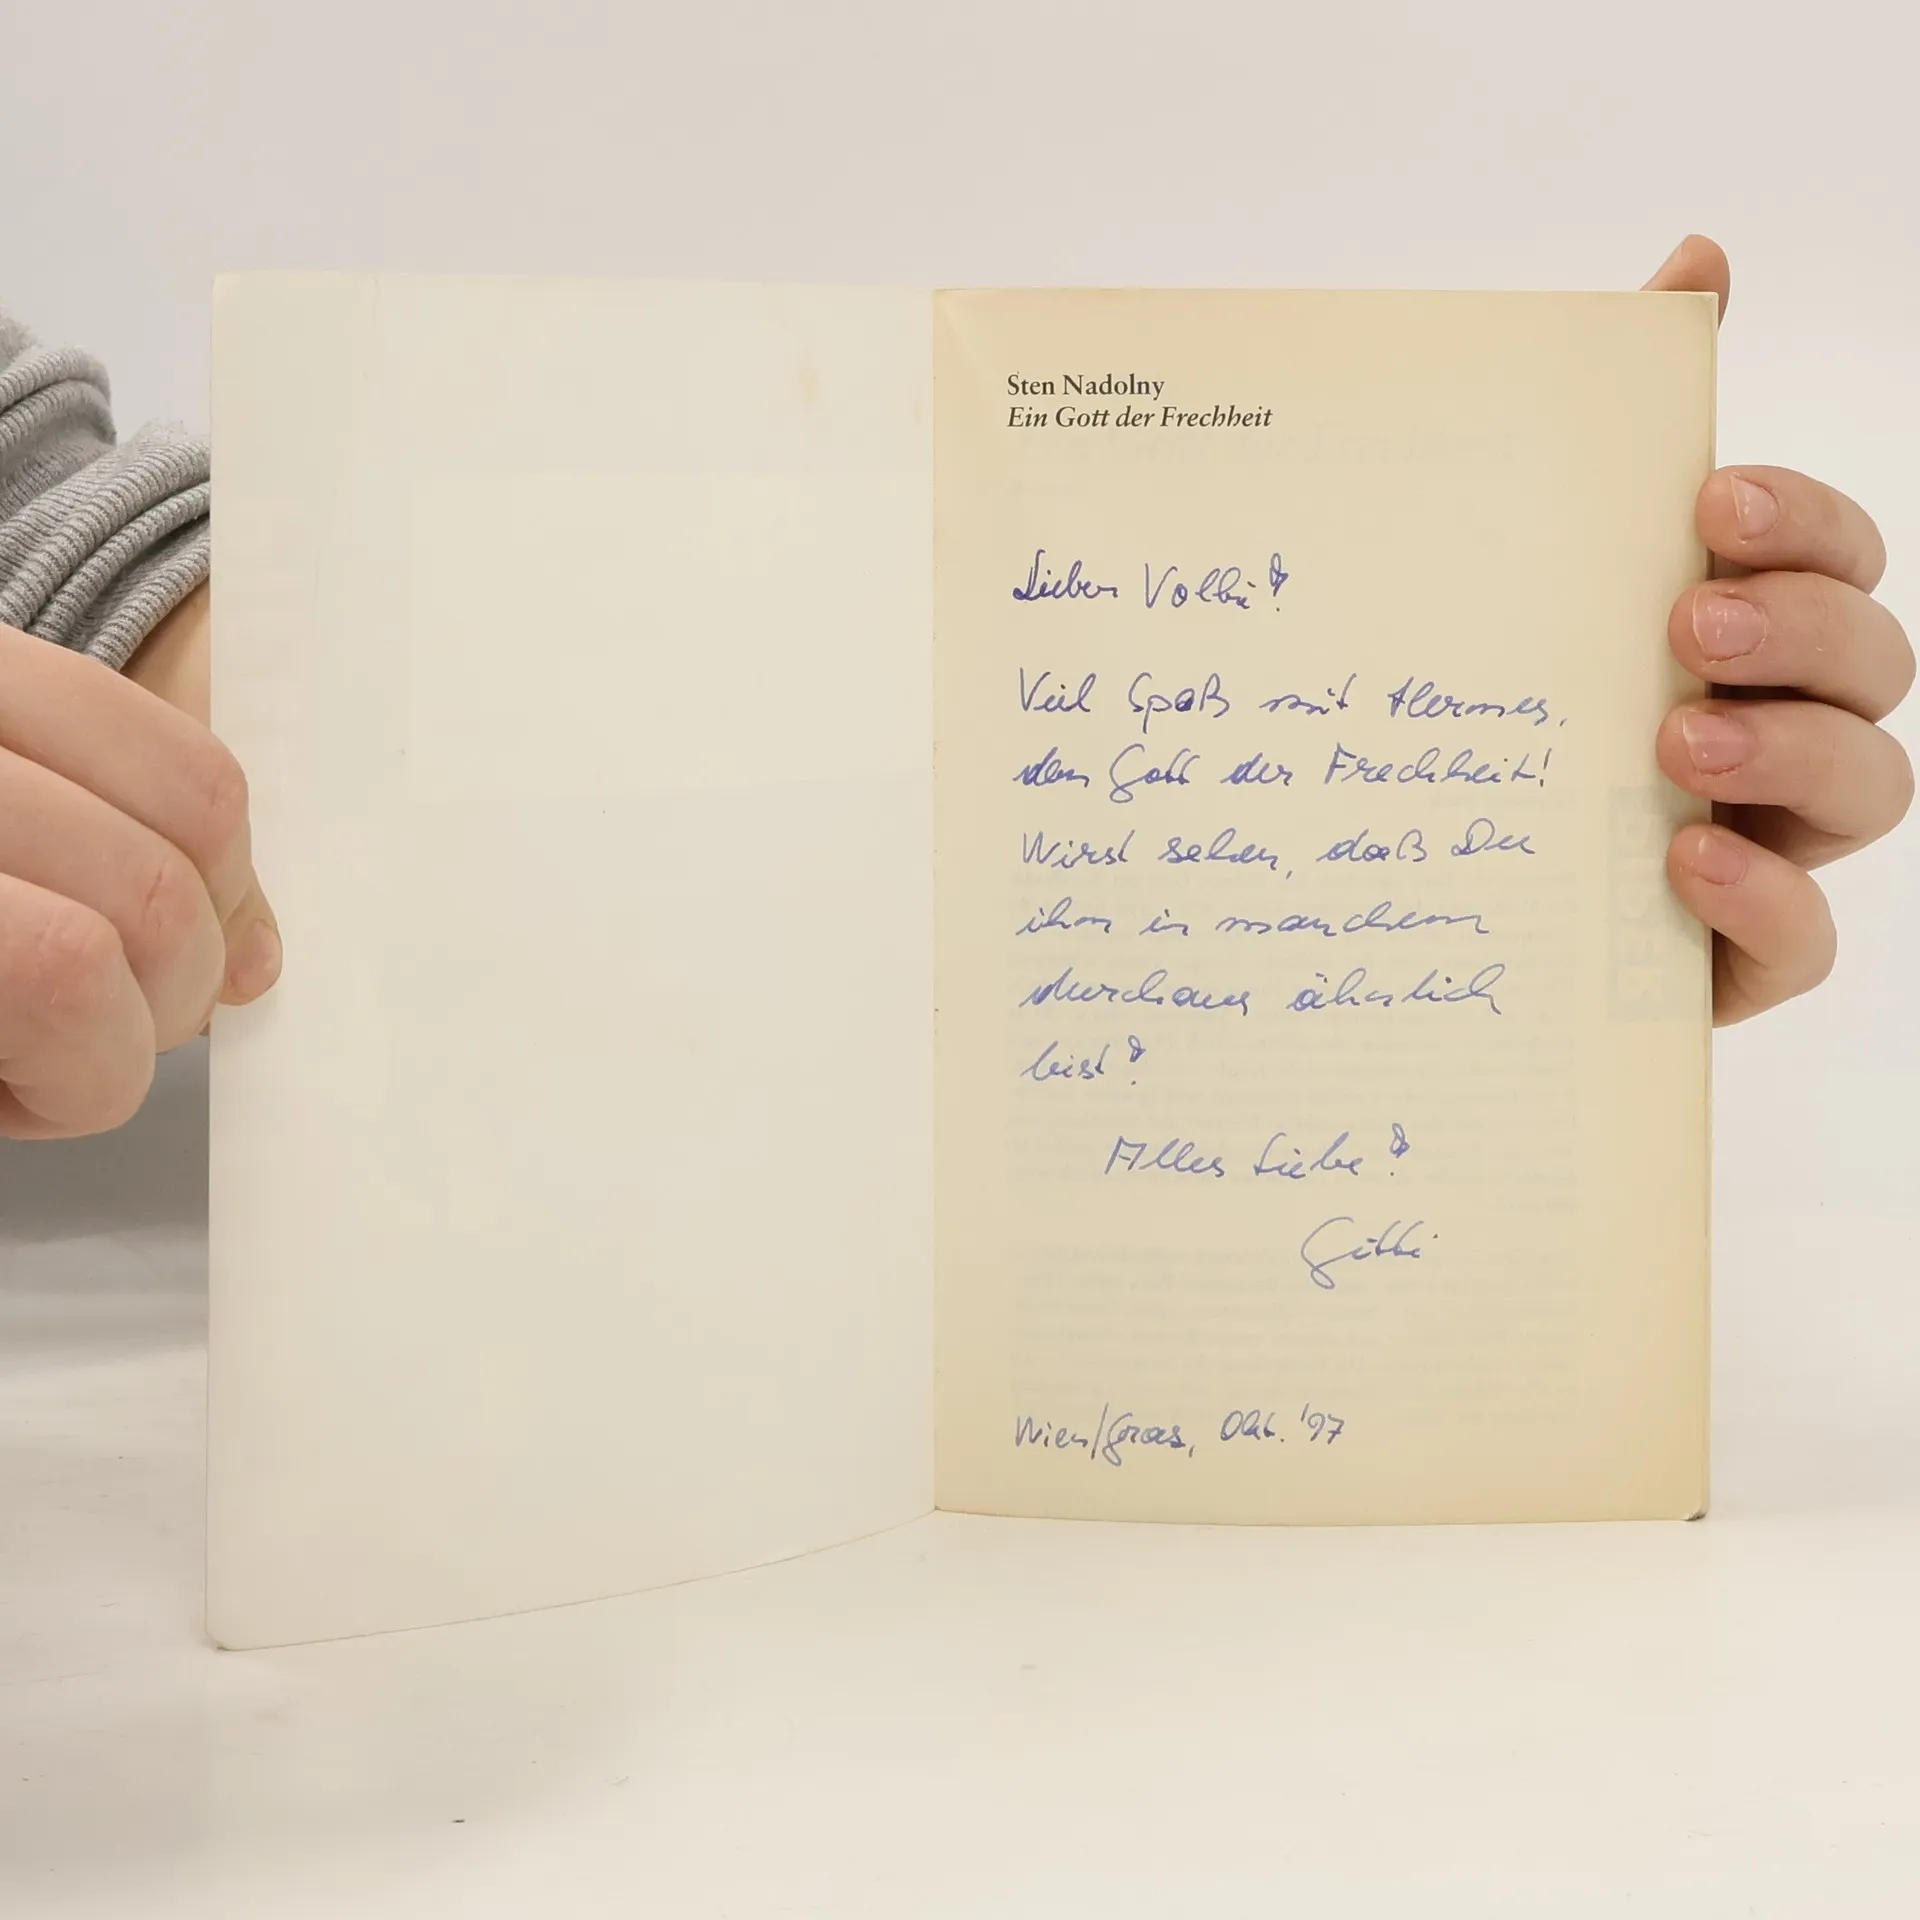 Sten Nadolny
Ein Gott der Frechheit
Lieber Volki!
Viel Spaß mit Hermes,
dem Gott der Frechheit!
Wirst sehen, daß Du
ihm in manchem
durchaus ähnlich
bist!
Alles Liebe!
Gitti
Wien/Graz, Okt. '97